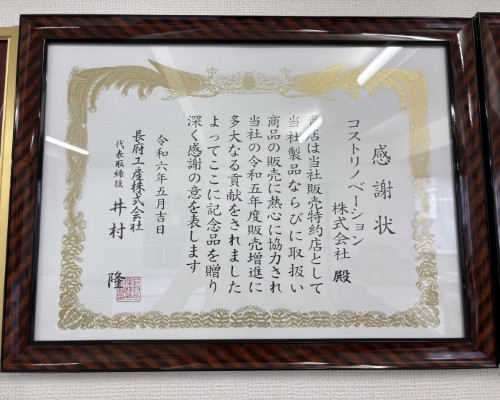 感謝状
コストリノベーション
株式会社 殿
貴店は当社販売特約店として
当社製品ならびに取扱い
商品の販売に熱心に協力され
当社の令和五年度販売増進に
多大なる貢献をされました
よってここに記念品を贈り
深く感謝の意を表します
令和六年五月吉日
長府工産株式会社
代表取締役 井村 隆